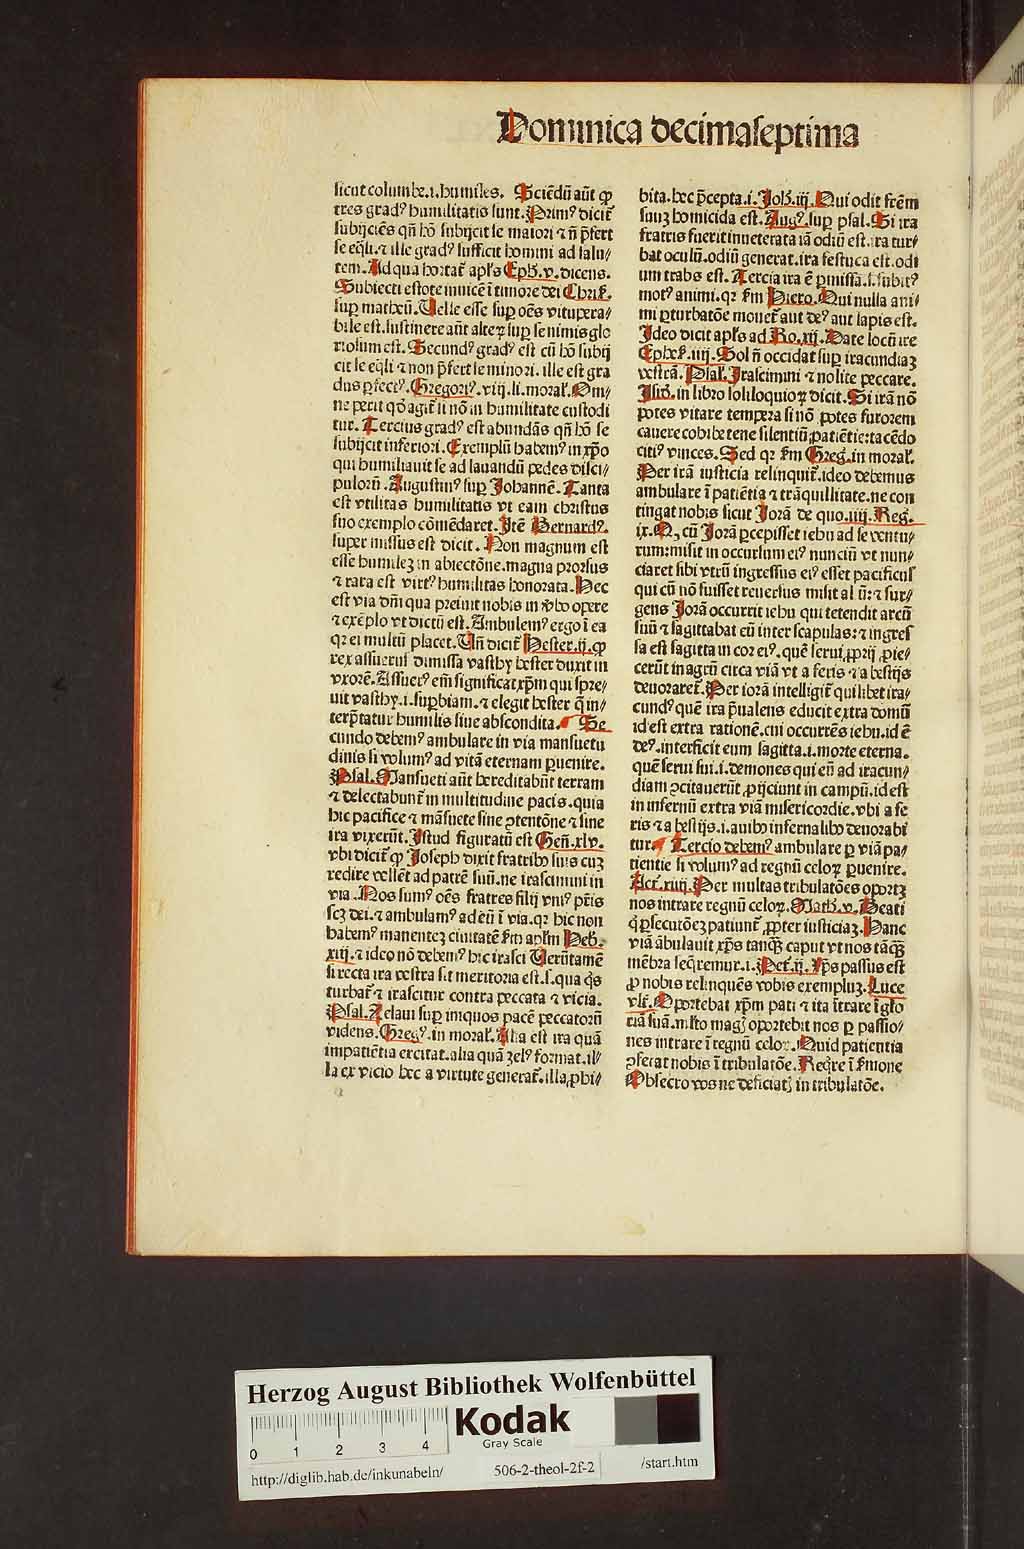 Dominica decimaseptima
sicut columbe .i. humiles. Sciēdū aūt ꝙ
tres gradꝰ humilitatis sunt. Primꝰ dicit᷑
subijciēs qn̄ hō subijcit se maiori ⁊ nō p̄fert
se eq̄li. ⁊ ille gradꝰ sufficit homini ad salu/
tem. Ad qua hortat᷑ apl's Eph. v. dicens.
Subiecti estote inuicē ī timore dei Chris.
sup matheū. Uelle esse sup oēs vitupera/
bile est. sustinere aūt alteꝝ sup se nimis glo
riosum est. Secundꝰ gradꝰ est cū hō subij
cit se eq̄li ⁊ non p̄fert se minori. ille est gra
dus ꝑfectꝰ. Gregoriꝰ. viij. li. moral'. Om/
ne perit qd̓ agit᷑ si nō in humilitate custodi
tur. Tercius gradꝰ est abundās qn̄ hō se
subijcit inferiori. Exemplū habemꝰ in xp̄o
qui humiliauit se ad lauandū pedes disci/
pulorū. Augustinꝰ sup Johannē. Tanta
est vtilitas humilitatis vt eam christus
suo exemplo cōmēdaret. Itē Bernardꝰ.
super missus est dicit. Non magnum est
esse humileꝫ in abiectōne. magna prorsus
⁊ rara est virtꝰ humilitas honorata. Hec
est via dn̄i qua preiuit nobis in v̄bo opere
⁊ exēplo vt dictū est. Ambulemꝰ ergo ī ea
qꝛ ei multū placet. Un̄ dicit᷑ Hester .ij. ꝙ
rex assuerus dimissa vasthy hester duxit in
vxorē. Assuerꝰ em̄ significat xp̄m qui spre/
uit vasthy .i. supbiam. ⁊ elegit hester q̄ in/
terp̄tatur humilis siue abscondita. Se
cundo debemꝰ ambulare in via mansuetu
dinis si volumꝰ ad vitā eternam peruenire.
Psal. Mansueti aūt hereditabūt terram
⁊ delectabunt᷑ in multitudine pacis. quia
hic pacifice ⁊ māsuete sine ꝯtentōne ⁊ sine
ira vixerūt. Istud figuratū est Gen̄. xlv.
vbi dicit᷑ ꝙ Joseph dixit fratribꝰ suis cuꝫ
redire vellēt ad patrē suū. ne irascimini in
via. Nos sumꝰ oēs fratres filij vniꝰ pr̄is
scꝫ dei. ⁊ ambulamꝰ ad eū ī via. qꝛ hic non
habemꝰ manenteꝫ ciuitatē fm apl'm Heb.
xiij. ⁊ ideo nō debemꝰ hic irasci Uerūtamē
si recta ira vestra sit meritoria est .s. qua q̄s
turbat᷑ ⁊ irascitur contra peccata ⁊ vicia.
Psal. Zelaui sup iniquos pacē peccatorū
videns. Gregꝰ. in moral'. Alia est ira quā
impatiētia excitat. alia quā zelꝰ format. il/
la ex vicio hec a virtute generat᷑. illa ꝓhi/
bita. hec p̄cepta .i. Joh. iij. Qui odit fr̄em
suuꝫ homicida est. Augꝰ. sup psal. Si ira
fratris fuerit inueterata iā odiū est. ira tur/
bat oculū. odiū generat. ira festuca est. odi
um trabs est. Tercia ira ē ꝑmissa .s. subitꝰ
motꝰ animi. qꝛ fm Hiero. Qui nulla ani/
mi ꝑturbatōe mouet᷑ aut deꝰ aut lapis est.
Ideo dicit apl's ad Ro. xij. Date locū ire
Ephes. iiij. Sol nō occidat sup iracundiaꝫ
vestrā. Psal. Irascimini ⁊ nolite peccare.
Isid̓. in libro soliloquioꝝ dicit. Si irā nō
potes vitare tempera si nō potes furorem
cauere cohibe tene silentiū patiētie: tacēdo
citiꝰ vinces. Sed qꝛ fm Greg. in moral'.
Per irā iusticia relinquit᷑. ideo debemus
ambulare ī patiētia ⁊ trāquillitate. ne con
tingat nobis sicut Jorā de quo .iiij. Reg.
ix. Q, cū Jorā ꝑcepisset iehu ad se ventu/
rum: misit in occursum eiꝰ nunciū vt nun/
ciaret sibi vtrū ingressus eiꝰ esset pacificus
qui cū nō fuisset reuersus misit aliū: ⁊ sur/
gens Jorā occurrit iehu qui tetendit arcū
suū ⁊ sagittabat eū inter scapulas: ⁊ ingres
sa est sagitta in cor eiꝰ. quē serui ꝓprij ꝓie/
cerūt in agrū circa viā vt a feris ⁊ a bestijs
deuoraret᷑. Per iorā intelligit᷑ quilibet ira/
cundꝰ quē ira p̄ualens educit extra domū
id est extra rationē. cui occurrēs iehu. id ē
deꝰ. interficit eum sagitta .i. morte eterna.
quē serui sui .i. demones qui eū ad iracun/
diam ꝯcitauerūt ꝓijciunt in campū. id est
in infernū extra viā misericordie. vbi a fe
ris ⁊ a bestijs .i. auibꝰ infernalibꝰ deuorabi
tur. Tercio debemꝰ ambulare ꝑ viā pa/
tientie si volumꝰ ad regnū celoꝝ ꝑuenire.
Act. xiiij. Per multas tribulatōes oportꝫ
nos intrare regnū celoꝝ. Math. v. Beati
q̄ ꝑsecutōeꝫ patiunt᷑ ꝓpter iusticiaꝫ. Hanc
viā ābulauit xp̄s tanqꝫ caput vt nos tāqꝫ
mēbra seq̄remur .i. Pet. ij. Xp̄s passus est
ꝓ nobis relinquēs vobis exempluꝫ. Luce
vlt. Oportebat xp̄m pati ⁊ ita ītrare ī glo
riā suā. mlto magꝭ oportebit nos ꝑ passio/
nes intrare ī regnū celoꝝ. Quid patientia
ꝯferat nobis ī tribulatōe. Req̄re ī s̄mone
Obsecro vos ne deficiatꝭ in tribulatōe.
Herzog August Bibliothek Wolfenbüttel
Kodak
Gray Scale
0 1 2 3 4
http://diglib.hab.de/inkunabeln/ 506-2-theol-2f-2 /start.htm